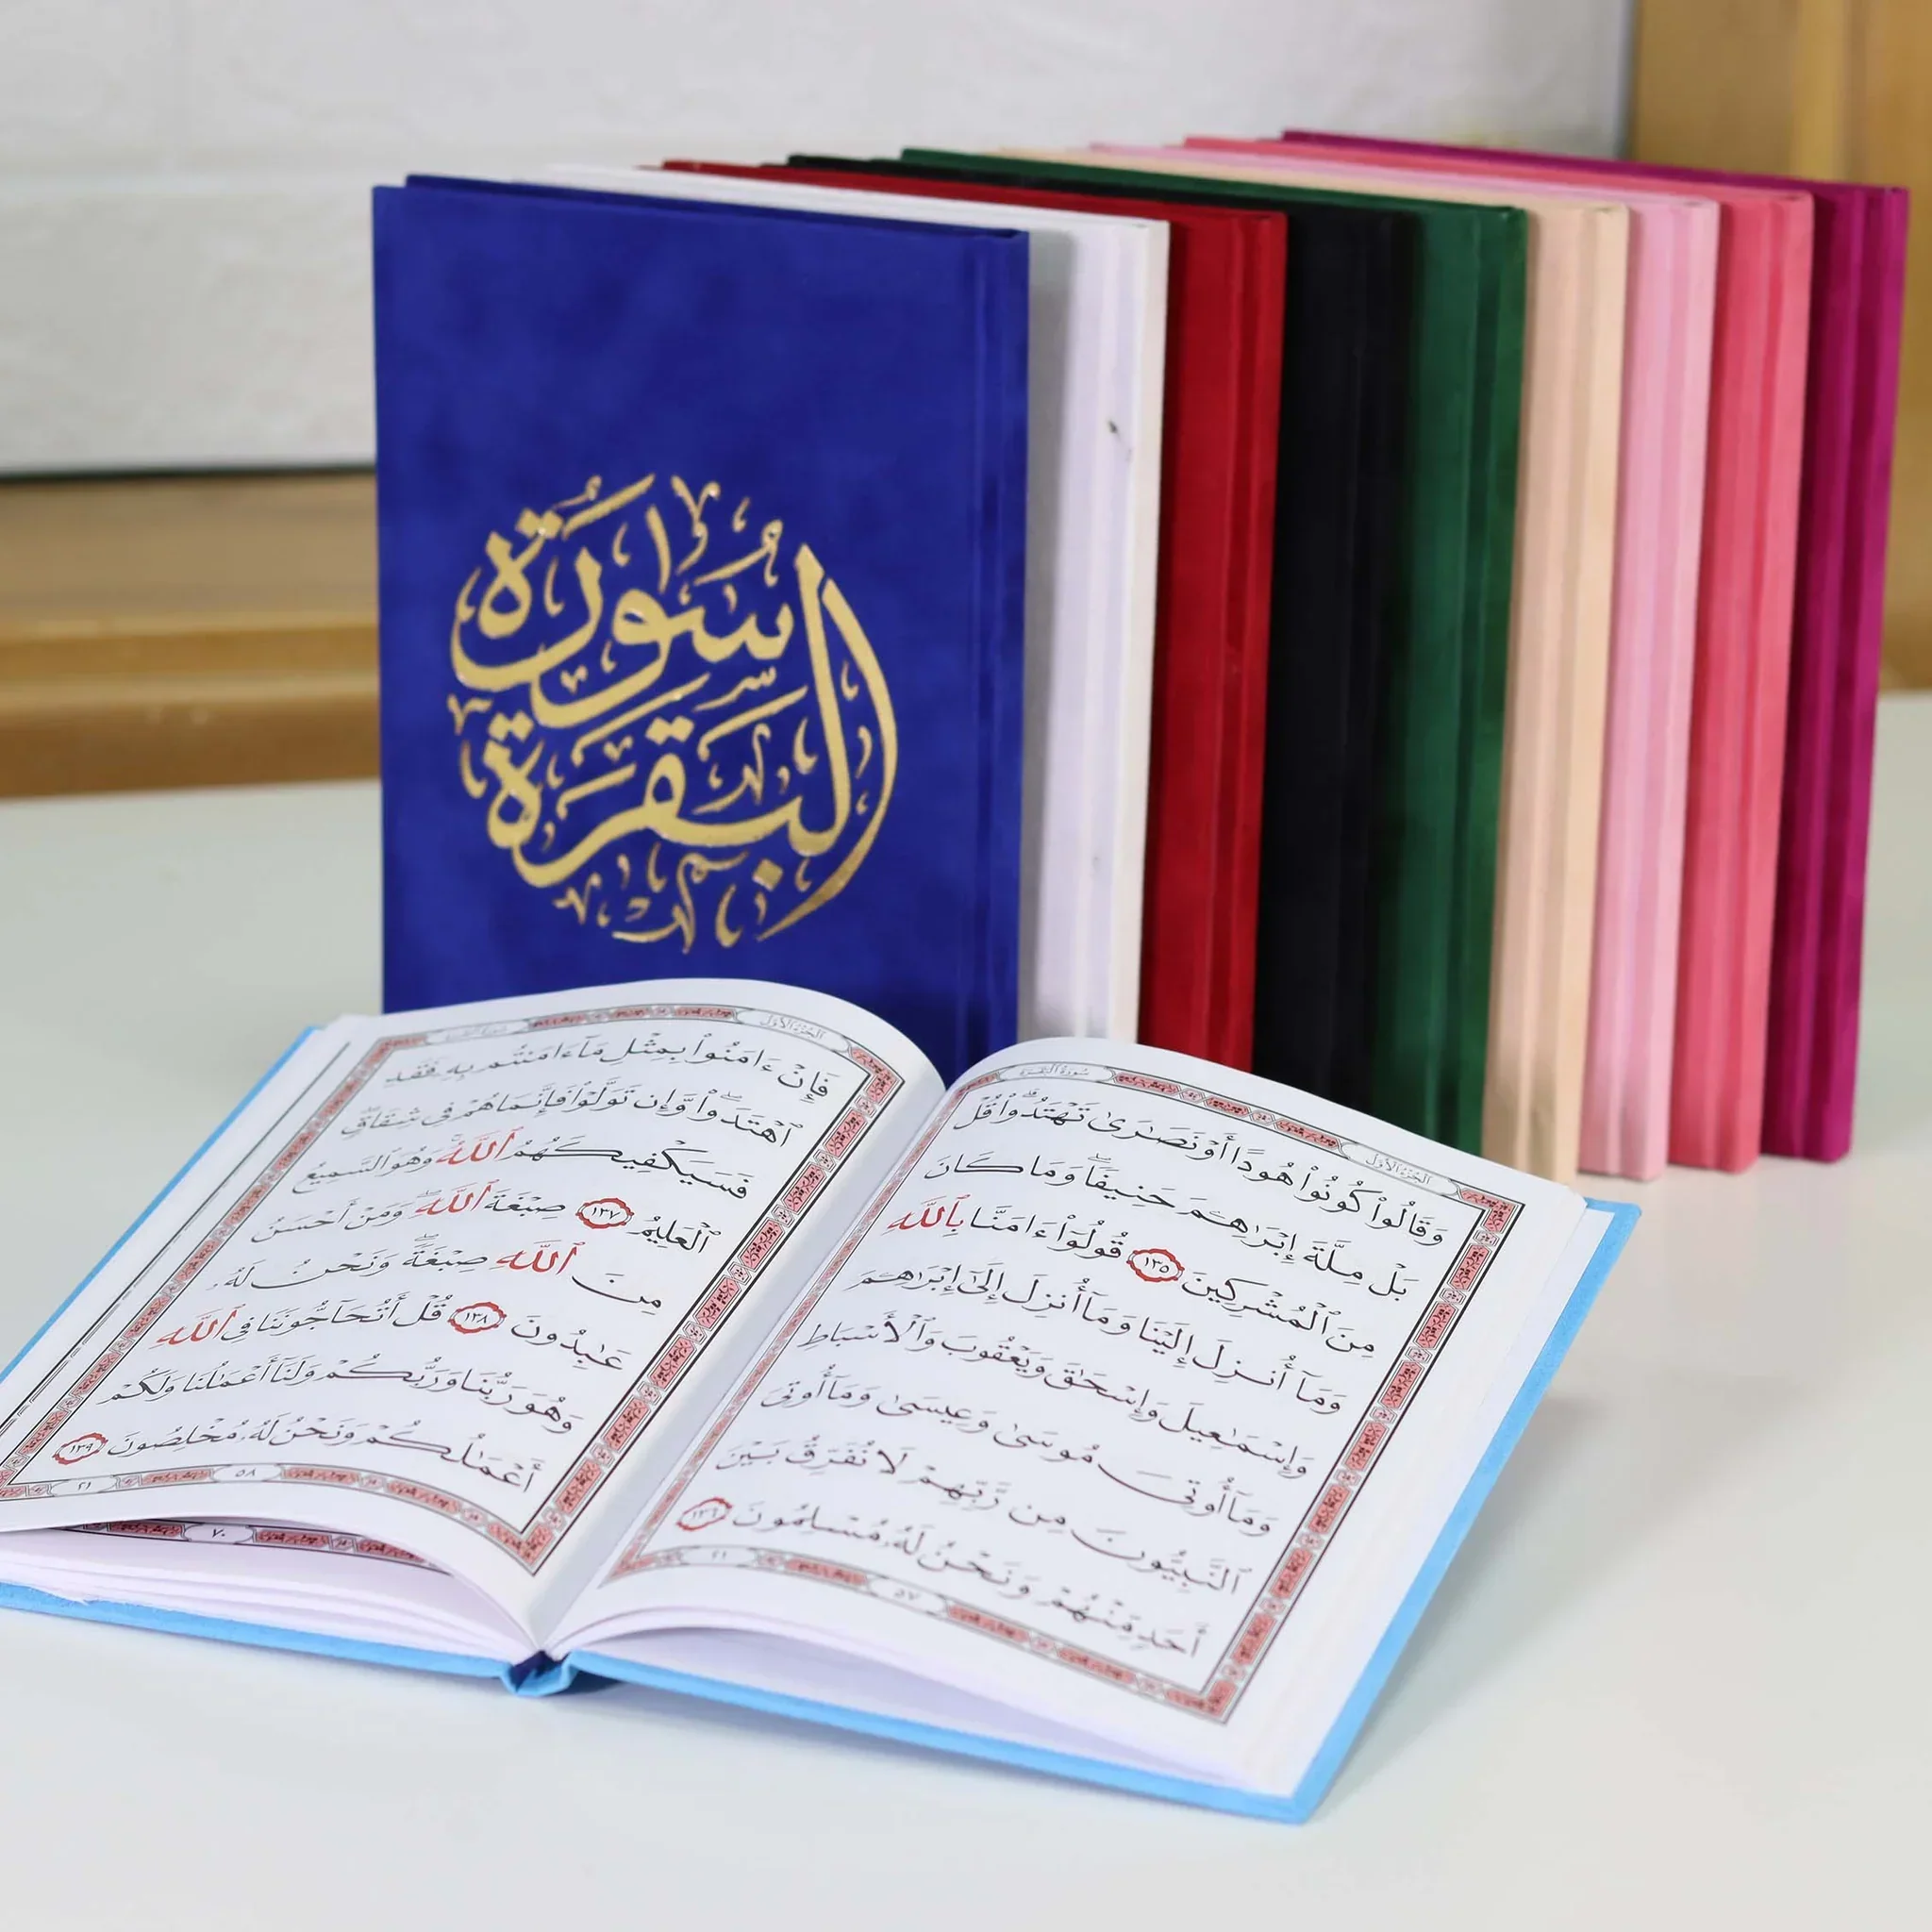 سُورَة
البَقَرَة
سُورَةُ البَقَرَة
الجُزْءُ الأَوَّل
وَقَالُوا۟ كُونُوا۟ هُودًا أَوْ نَصَـٰرَىٰ تَهْتَدُوا۟ ۗ قُلْ
بَلْ مِلَّةَ إِبْرَٰهِـۧمَ حَنِيفًا ۖ وَمَا كَانَ
مِنَ ٱلْمُشْرِكِينَ ١٣٥ قُولُوٓا۟ ءَامَنَّا بِٱللَّهِ
وَمَآ أُنزِلَ إِلَيْنَا وَمَآ أُنزِلَ إِلَىٰٓ إِبْرَٰهِـۧمَ
وَإِسْمَـٰعِيلَ وَإِسْحَـٰقَ وَيَعْقُوبَ وَٱلْأَسْبَاطِ
وَمَآ أُوتِىَ مُوسَىٰ وَعِيسَىٰ وَمَآ أُوتِىَ
ٱلنَّبِيُّونَ مِن رَّبِّهِمْ لَا نُفَرِّقُ بَيْنَ
أَحَدٍ مِّنْهُمْ وَنَحْنُ لَهُۥ مُسْلِمُونَ ١٣٦
٥٧
٢١
الجُزْءُ الأَوَّل
فَإِنْ ءَامَنُوا۟ بِمِثْلِ مَآ ءَامَنتُم بِهِۦ فَقَدِ
ٱهْتَدَوا۟ ۖ وَّإِن تَوَلَّوْا۟ فَإِنَّمَا هُمْ فِى شِقَاقٍ ۖ
فَسَيَكْفِيكَهُمُ ٱللَّهُ ۚ وَهُوَ ٱلسَّمِيعُ
ٱلْعَلِيمُ ١٣٧ صِبْغَةَ ٱللَّهِ ۖ وَمَنْ أَحْسَنُ
مِنَ ٱللَّهِ صِبْغَةً ۖ وَنَحْنُ لَهُۥ
عَـٰبِدُونَ ١٣٨ قُلْ أَتُحَآجُّونَنَا فِى ٱللَّهِ
وَهُوَ رَبُّنَا وَرَبُّكُمْ وَلَنَآ أَعْمَـٰلُنَا وَلَكُمْ
أَعْمَـٰلُكُمْ وَنَحْنُ لَهُۥ مُخْلِصُونَ ١٣٩
٥٨
٢١
٧٠